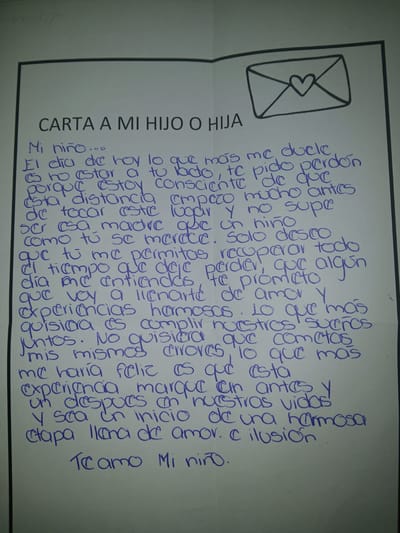 CARTA A MI HIJO O HIJA
Mi niño...
El dia de hoy lo que más me duele
es no estar a tu lado, te pido perdón
porque estoy consciente de que
esta distancia empezo mucho antes
de tocar este lugar y no supe
ser esa madre que un niño
como tú se merece. Solo deseo
que tú me permitas recuperar todo
el tiempo que deje perder, que algún
día me entiendas, te prometo
que voy a llenarte de amor y
experiencias hermosas. Lo que más
quisiera es cumplir nuestros sueños
juntos. No quisiera que cometas
mis mismos errores, lo que más
me haría feliz es que esta
experiencia marque un antes y
un despues en nuestras vidas
y sea un inicio de una hermosa
etapa llena de amor. e ilusión
Te amo Mi niño.